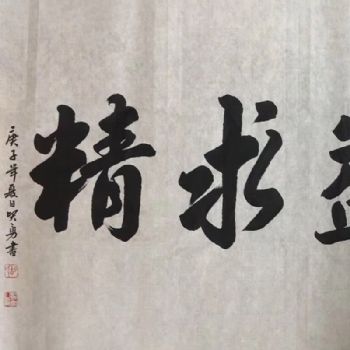 益求精
庚子年夏日賢勇書